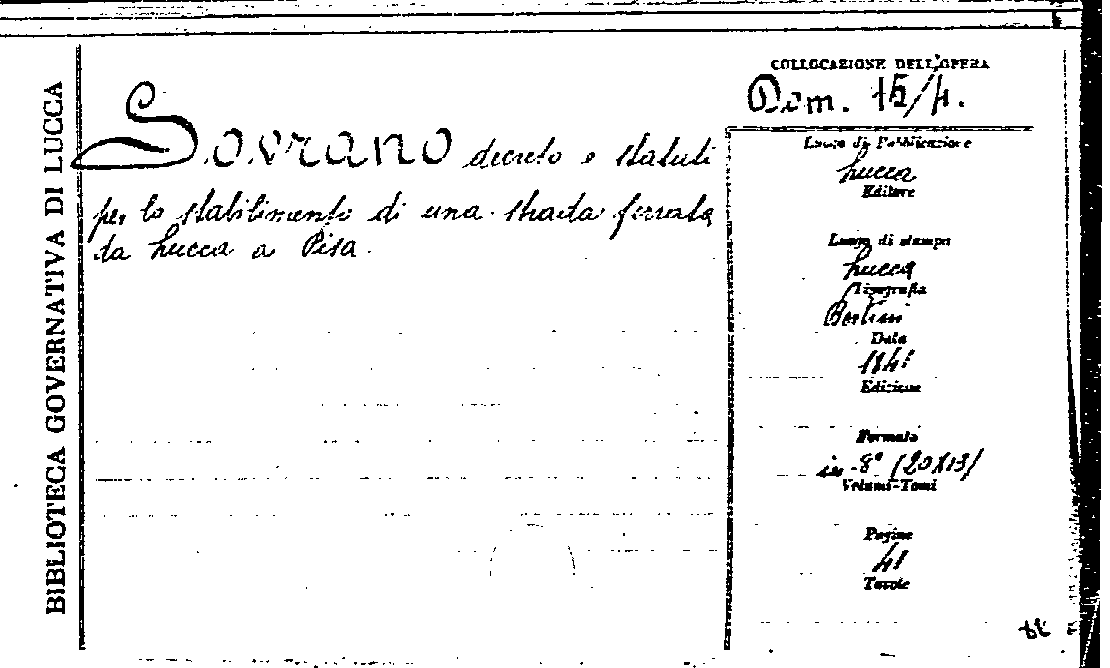 BIBLIOTECA GOVERNATIVA DI LUCCA
Sovrano decreto e statuti
per lo stabilimento di una strada ferrata
da Lucca a Pisa.
COLLOCAZIONE DELL'OPERA
Dom. 15/4.
Luogo di Pubblicazione
Lucca
Editore
Luogo di stampa
Lucca
Tipografia
Bertini
Data
1841
Edizione
Formato
in-8° (20X13)
Volumi-Tomi
Pagine
41
Tavole